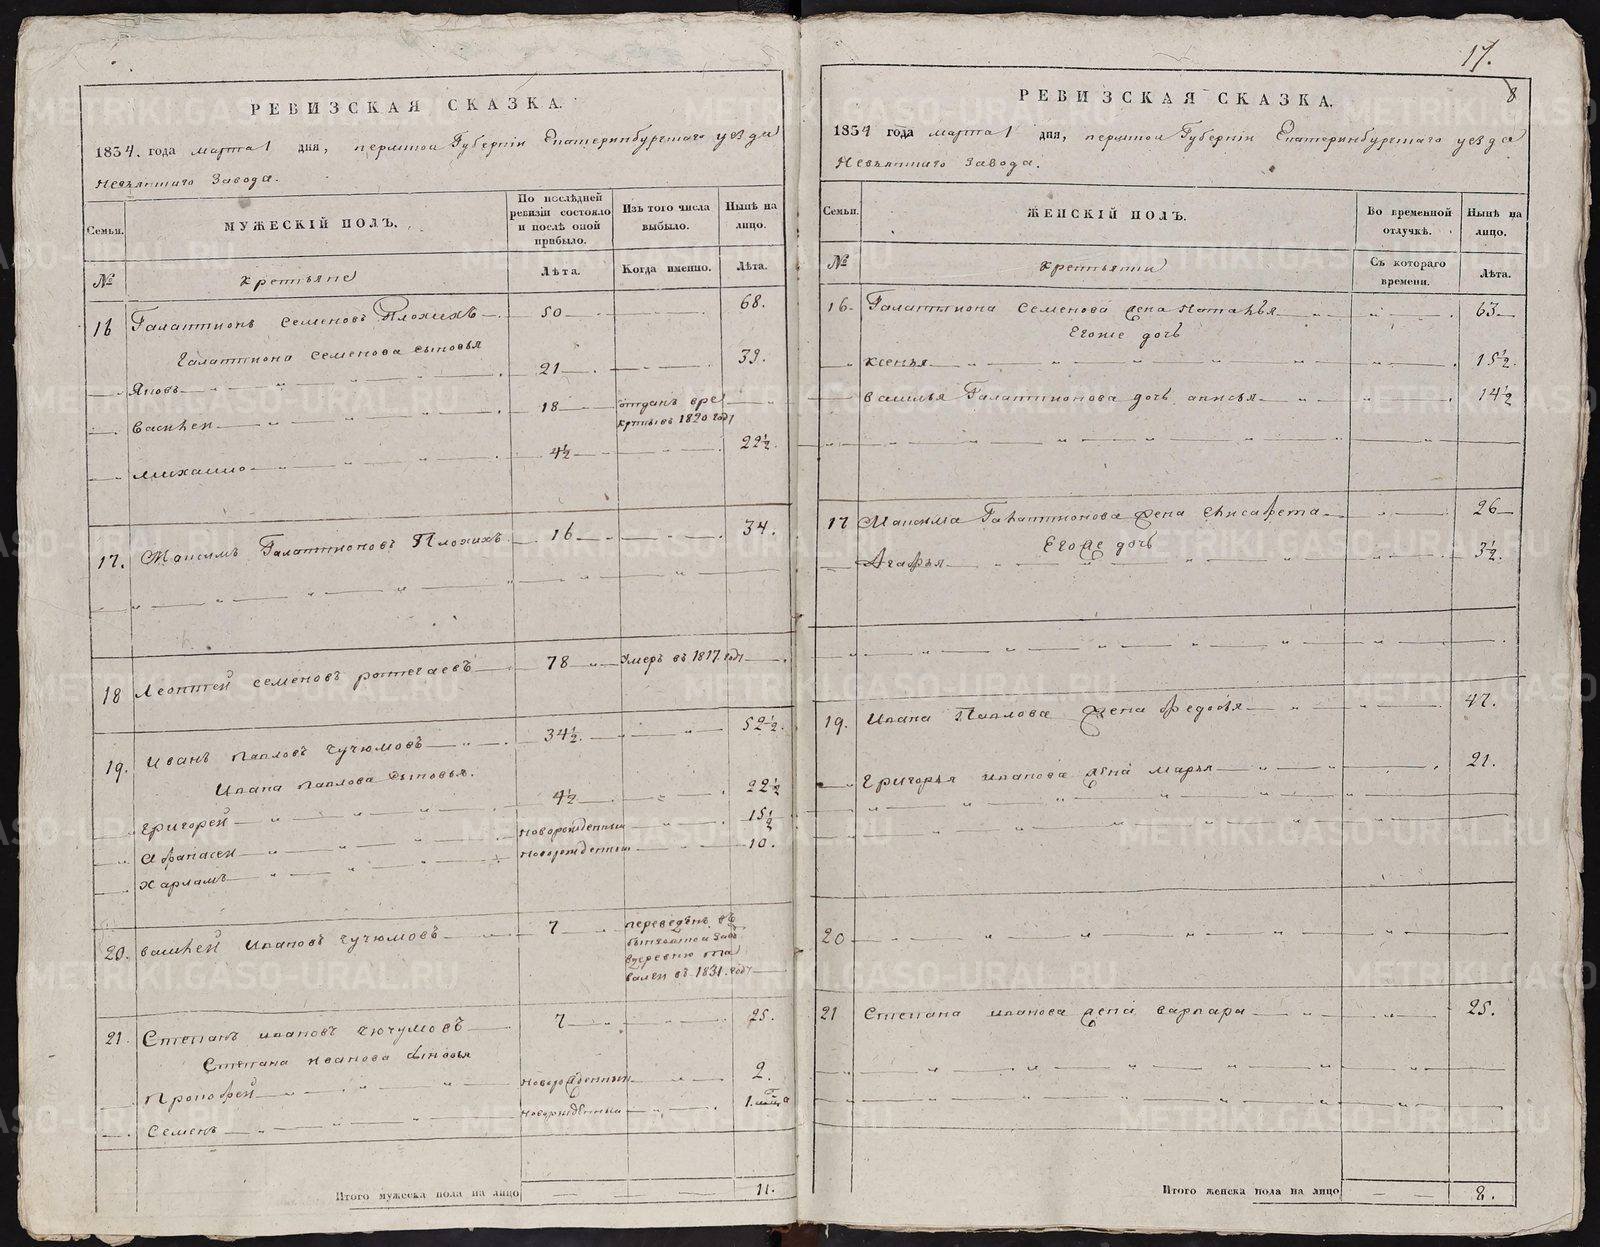 17.
8
РЕВИЗСКАЯ СКАЗКА.
1834. года марта 1 дня, пермской Губерніи Екатеринбургскаго уезда
Невьянскаго Завода.
Семьи.
МУЖЕСКІЙ ПОЛЪ.
По послѣдней ревизіи состояло и послѣ оной прибыло.
Изъ того числа выбыло.
Нынѣ на лицо.
№
крестьяне
Лѣта.
Когда именно.
Лѣта.
16 Галактионъ семеновъ Плохихъ 50 68.
Галактиона семенова сыновья
Яковъ 21 39.
Василей 18 отданъ вре крты въ 1820 году
михаило 4½ 22½
17. Максимъ Галактионовъ Плохихъ 16 34.
18 Леонтей семеновъ 78 Умеръ въ 1817 году
19. Иванъ павловъ чучюмовъ 34½. 52½.
Ивана павлова сыновья.
григорей 4½ 22½
Афанасей новорожденный 15½
Харламъ новорожденный 10.
20. василей Ивановъ чучюмовъ 7 переведенъ въ
вдеревню
въ 1831. году
21. Степанъ ивановъ чючумовъ 7 25.
Степана иванова сыновья
Прокофей новорожденный 2.
Семенъ новорожденный 1.
Итого мужеска пола на лицо 11.
РЕВИЗСКАЯ СКАЗКА.
1834 года марта 1 дня, пермской Губерніи Екатеринбургскаго уезда
Невьянскаго Завода.
Семьи.
ЖЕНСКІЙ ПОЛЪ.
Во временной отлучкѣ.
Нынѣ на лицо.
№
крестьянки
Съ котораго времени.
Лѣта.
16. Галактиона Семенова жена наталья 63
Егоже дочь
ксенья 15½.
василья Галактионова дочь анисья 14½
17 Максима Галактионова жена елисафета 26
Егоже дочь
Агафья 3½.
19. Ивана Павлова жена федосья 47.
григорья иванова жена марья 21.
20
21 Степана иванова жена варвара 25.
Итого женска пола на лицо 8.
METRIKI.GASO-URAL.RU